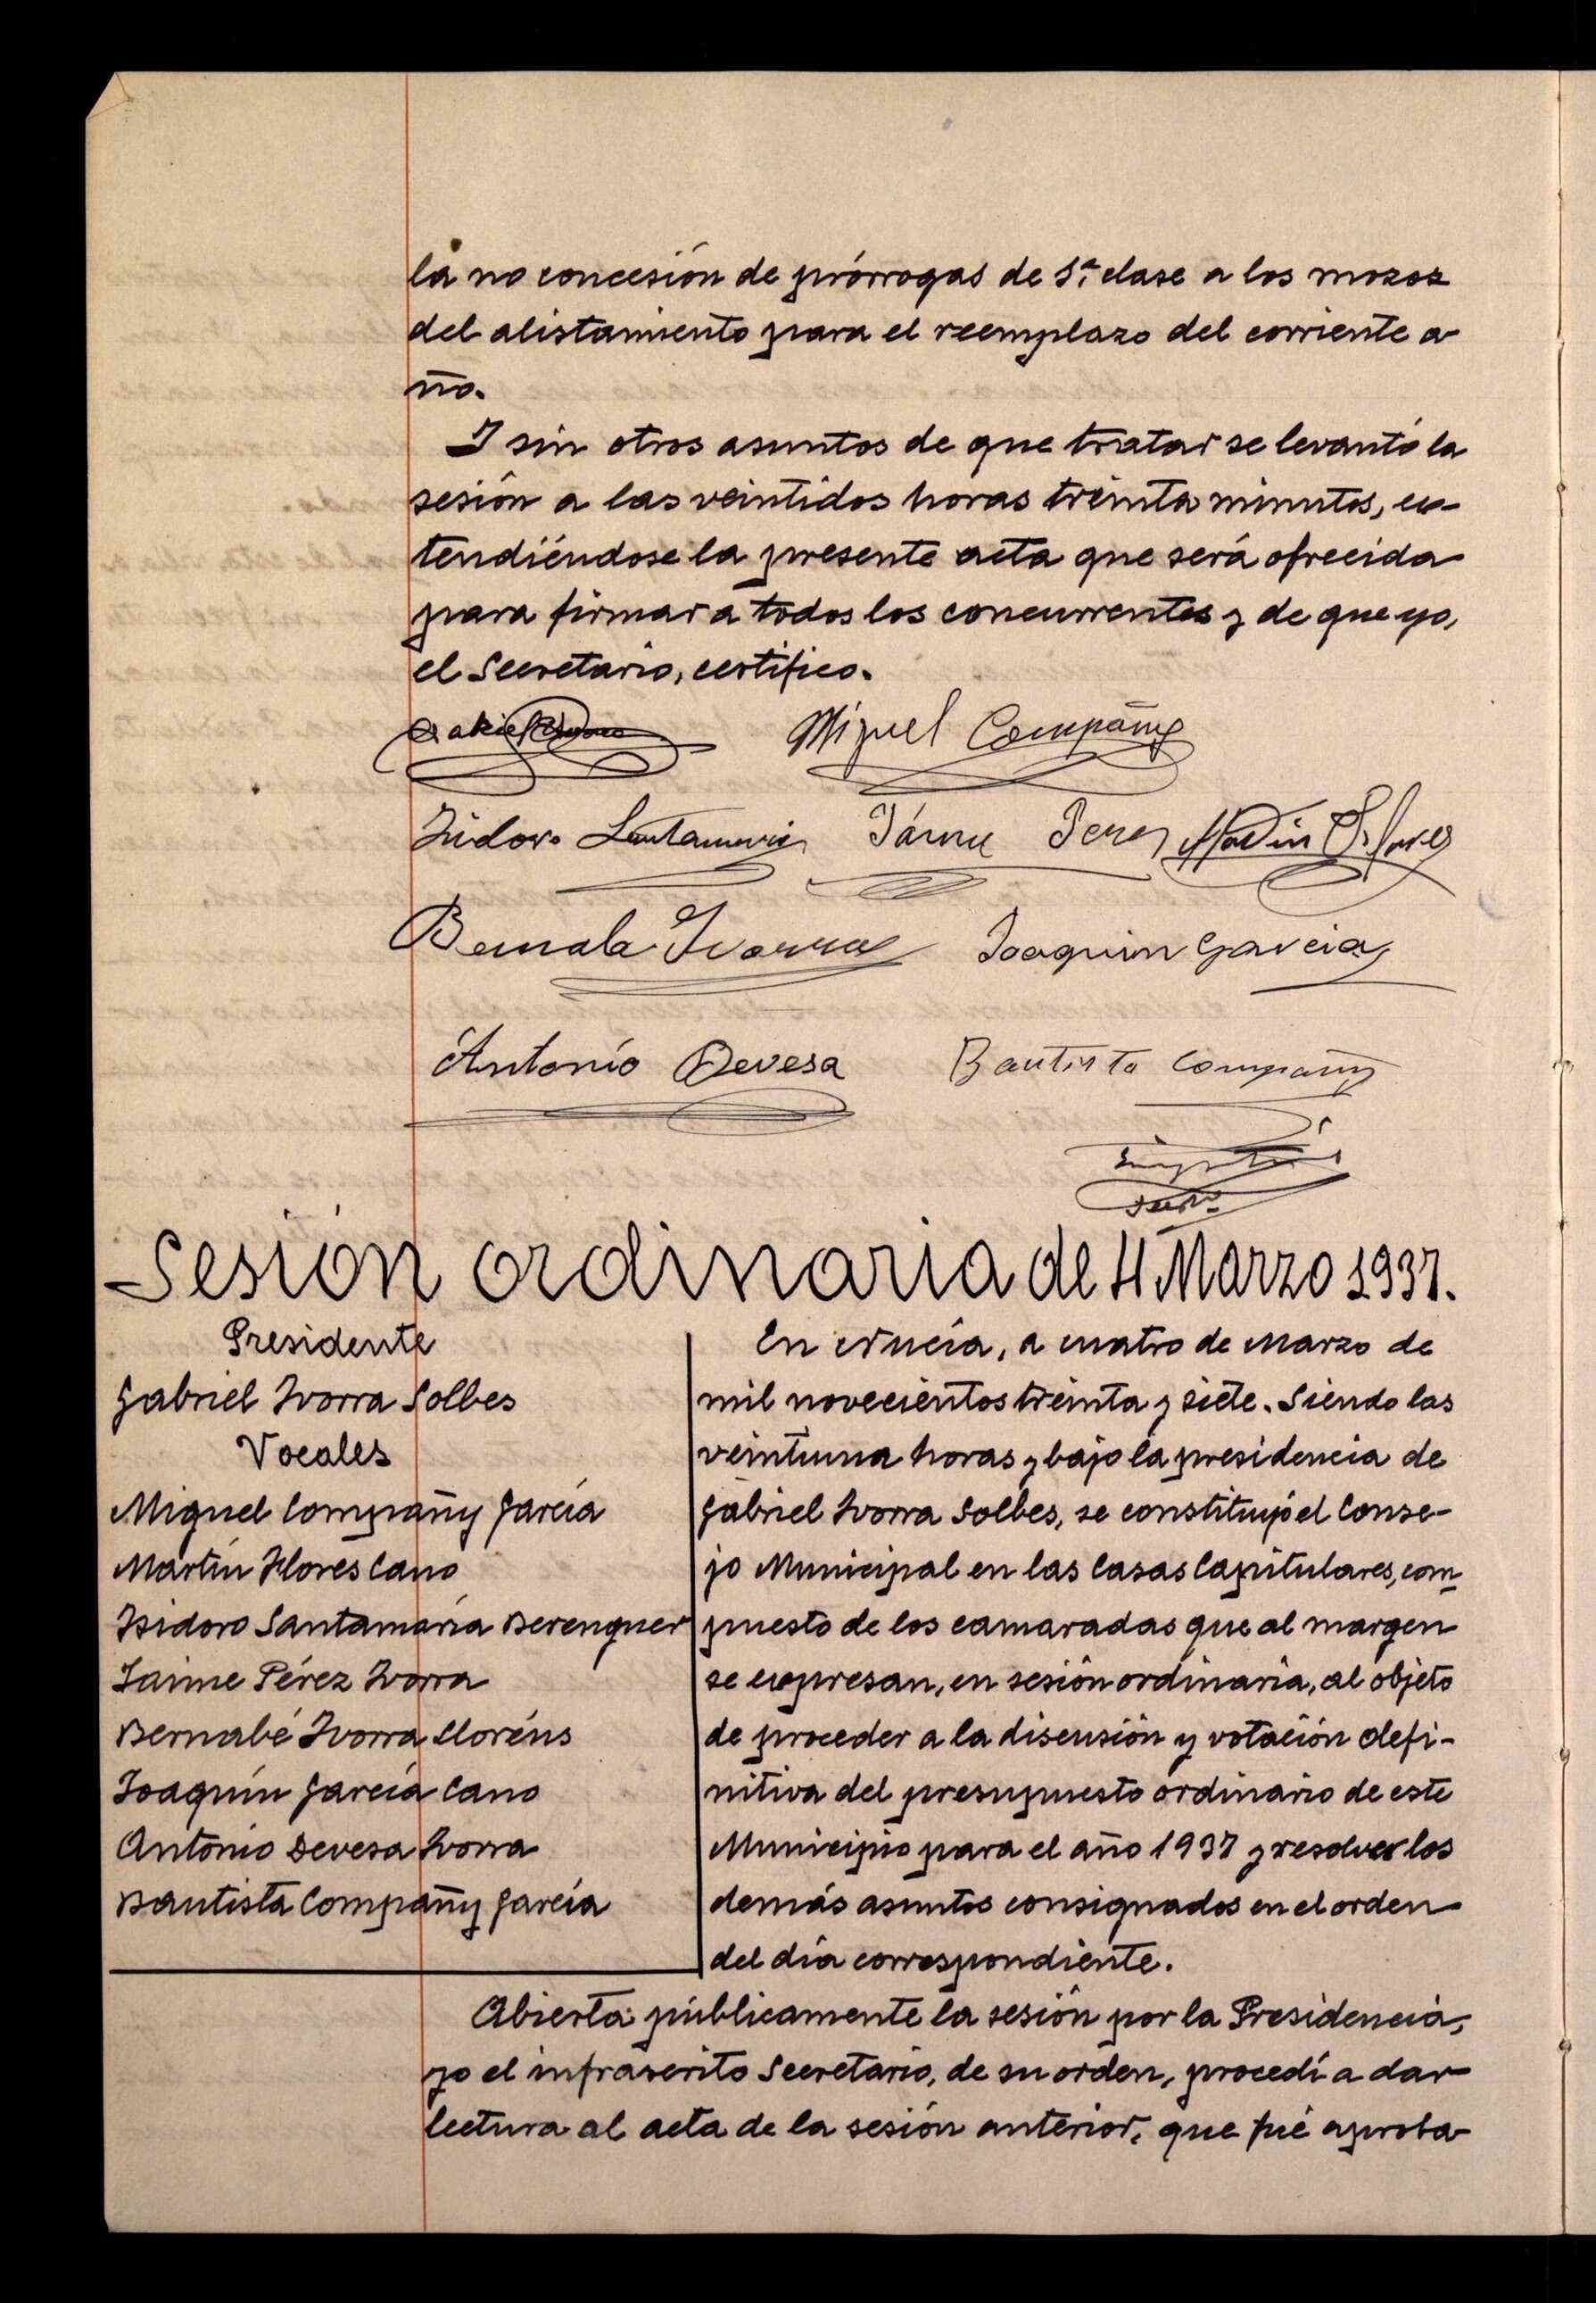 la no concesión de prórrogas de 1ª clase a los mozos
del alistamiento para el reemplazo del corriente a
ño.
Y sin otros asuntos de que tratar se levantó la
sesión a las veintidos horas treinta minutos, ex-
tendiéndose la presente acta que será ofrecida
para firmar a todos los concurrentes y de que yo,
el Secretario, certifico.
Miguel Compañy
Isidoro Santamaria Jaime Perez Martin Flores
Bernabe Ivorra Joaquin Garcia
Antonio Devesa Bautista Compañy
Sesión ordinaria de 4 Marzo 1937.
Presidente
Gabriel Ivorra Solbes
Vocales
Miguel Compañy García
Martín Flores Cano
Isidoro Santamaría Berenguer
Jaime Pérez Ivorra
Bernabé Ivorra Lloréns
Joaquín García Cano
Antonio Devesa Ivorra
Bautista Compañy García
En Nucía, a cuatro de Marzo de
mil novecientos treinta y siete. Siendo las
veintiuna horas y bajo la presidencia de
Gabriel Ivorra Solbes, se constituyó el Conse-
jo Municipal en las Casas Capitulares, com-
puesto de los camaradas que al margen
se expresan, en sesión ordinaria, al objeto
de proceder a la discusión y votación defi-
nitiva del presupuesto ordinario de este
Municipio para el año 1937 y resolver los
demás asuntos consignados en el orden
del día correspondiente.
Abierta públicamente la sesión por la Presidencia,
yo el infrascrito Secretario, de su orden, procedí a dar
lectura al acta de la sesión anterior, que fué aproba